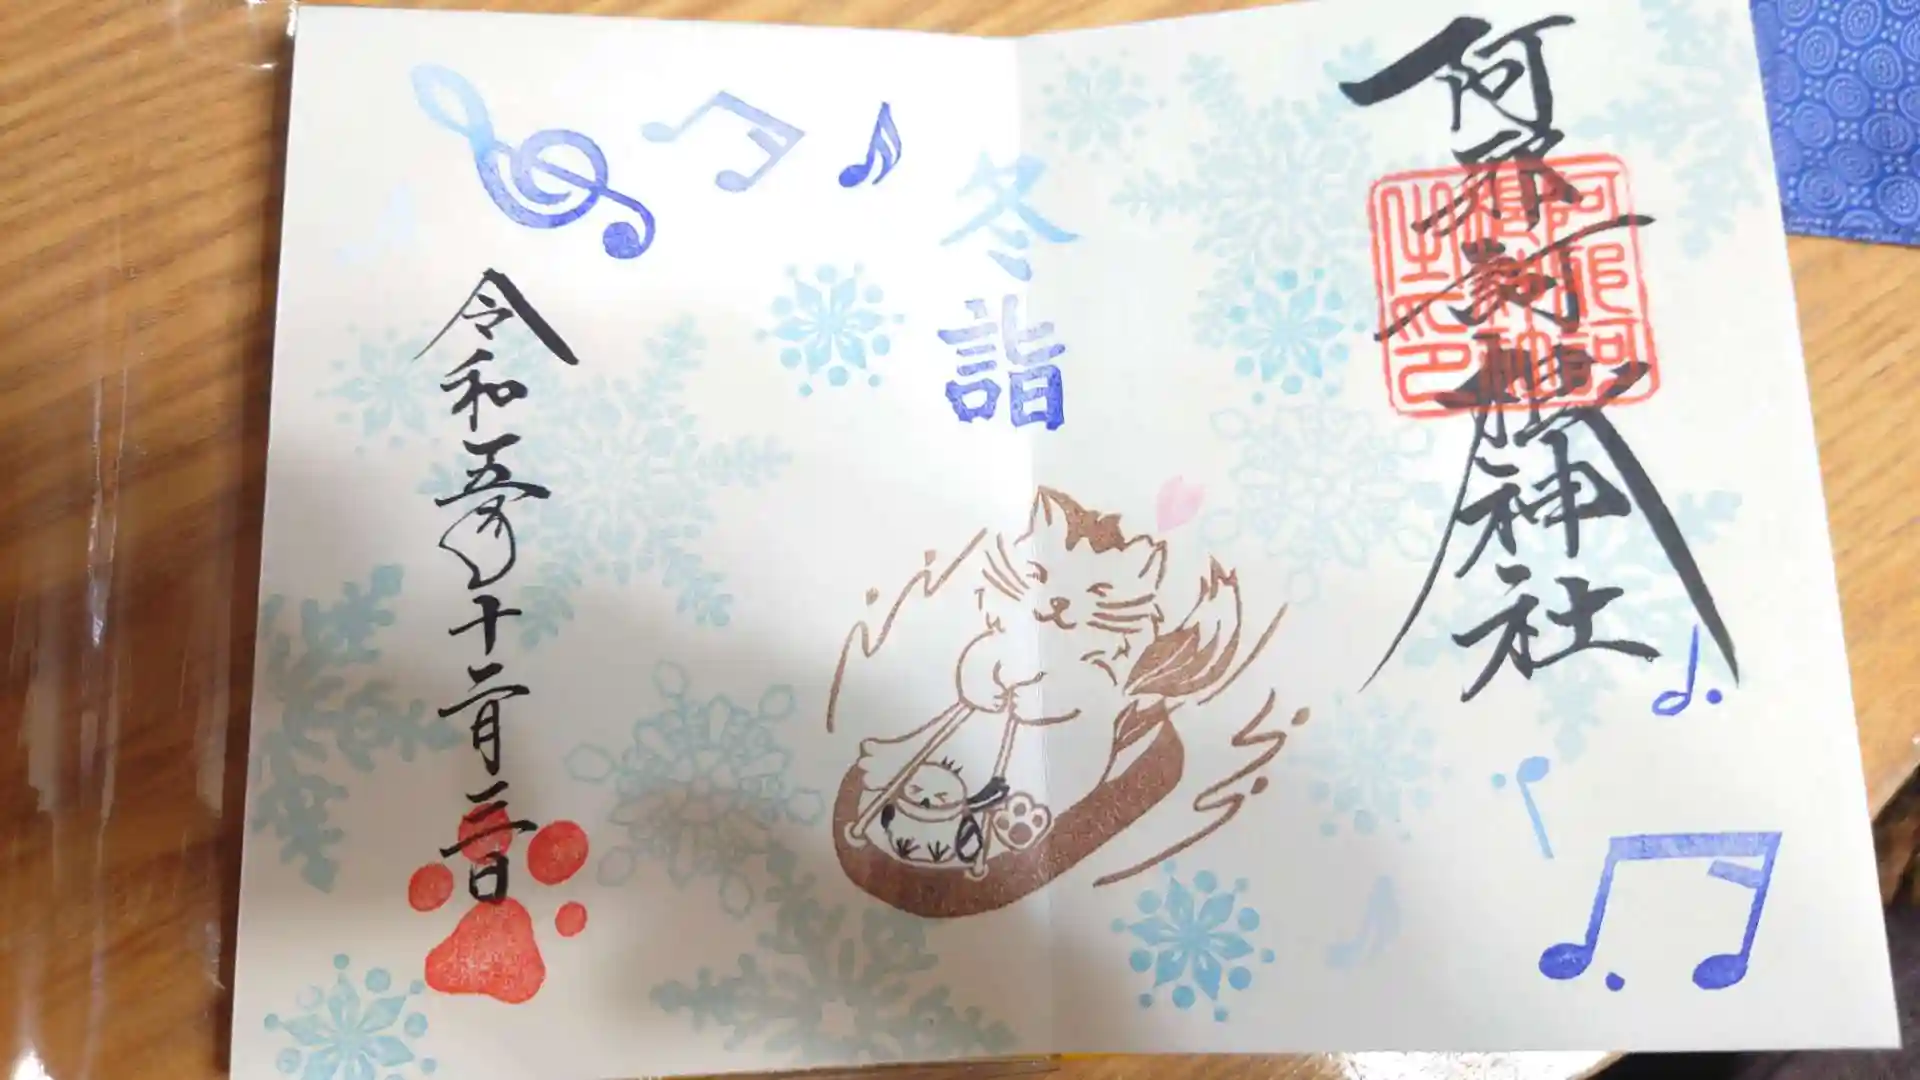 阿邪訶根神社
阿邪訶
根神社
之印
冬詣
令和五年十二月三日